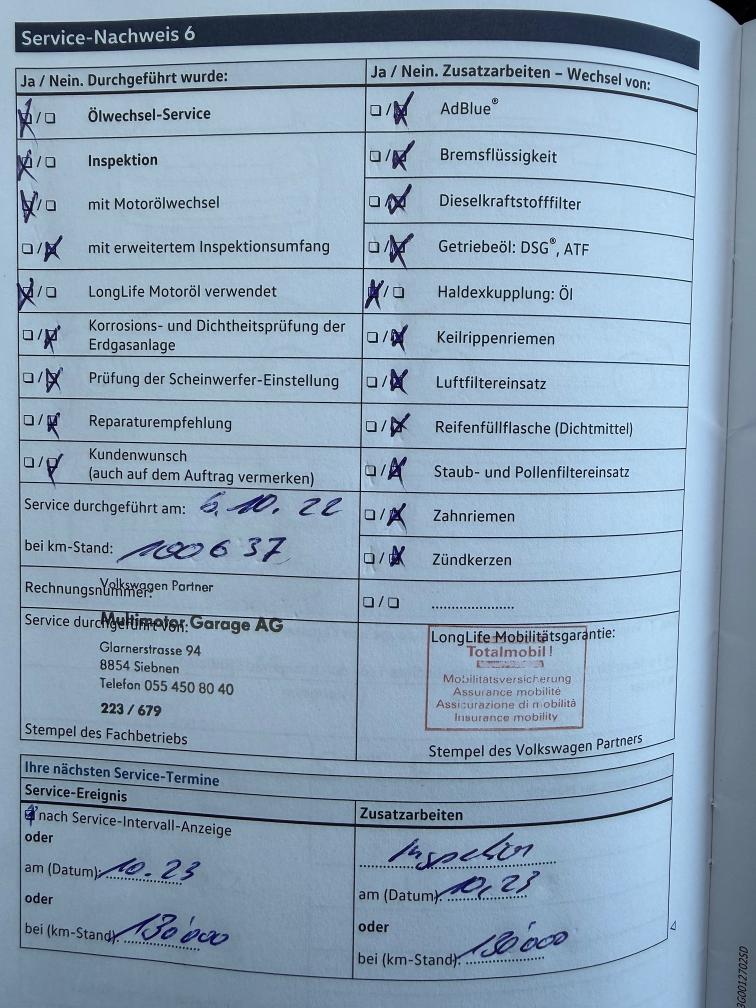 Service-Nachweis 6
Ja / Nein. Durchgeführt wurde:
Ölwechsel-Service
Inspektion
mit Motorölwechsel
mit erweitertem Inspektionsumfang
LongLife Motoröl verwendet
Korrosions- und Dichtheitsprüfung der
Erdgasanlage
Prüfung der Scheinwerfer-Einstellung
Reparaturempfehlung
Kundenwunsch
(auch auf dem Auftrag vermerken)
Service durchgeführt am: 6.10.22
bei km-Stand: 100637
Rechnungsnummer:
Volkswagen Partner
Service durchgeführt von:
Multimotor Garage AG
Glarnerstrasse 94
8854 Siebnen
Telefon 055 450 80 40
223 / 679
Stempel des Fachbetriebs
Ja / Nein. Zusatzarbeiten – Wechsel von:
AdBlue®
Bremsflüssigkeit
Dieselkraftstofffilter
Getriebeöl: DSG®, ATF
Haldexkupplung: Öl
Keilrippenriemen
Luftfiltereinsatz
Reifenfüllflasche (Dichtmittel)
Staub- und Pollenfiltereinsatz
Zahnriemen
Zündkerzen
LongLife Mobilitätsgarantie:
Totalmobil!
Mobilitätsversicherung
Assurance mobilité
Assicurazione di mobilità
Insurance mobility
Stempel des Volkswagen Partners
Ihre nächsten Service-Termine
Service-Ereignis
nach Service-Intervall-Anzeige
oder
am (Datum): 10.23
oder
bei (km-Stand): 130'000
Zusatzarbeiten
Inspektion
am (Datum): 10.23
oder
bei (km-Stand): 130'000